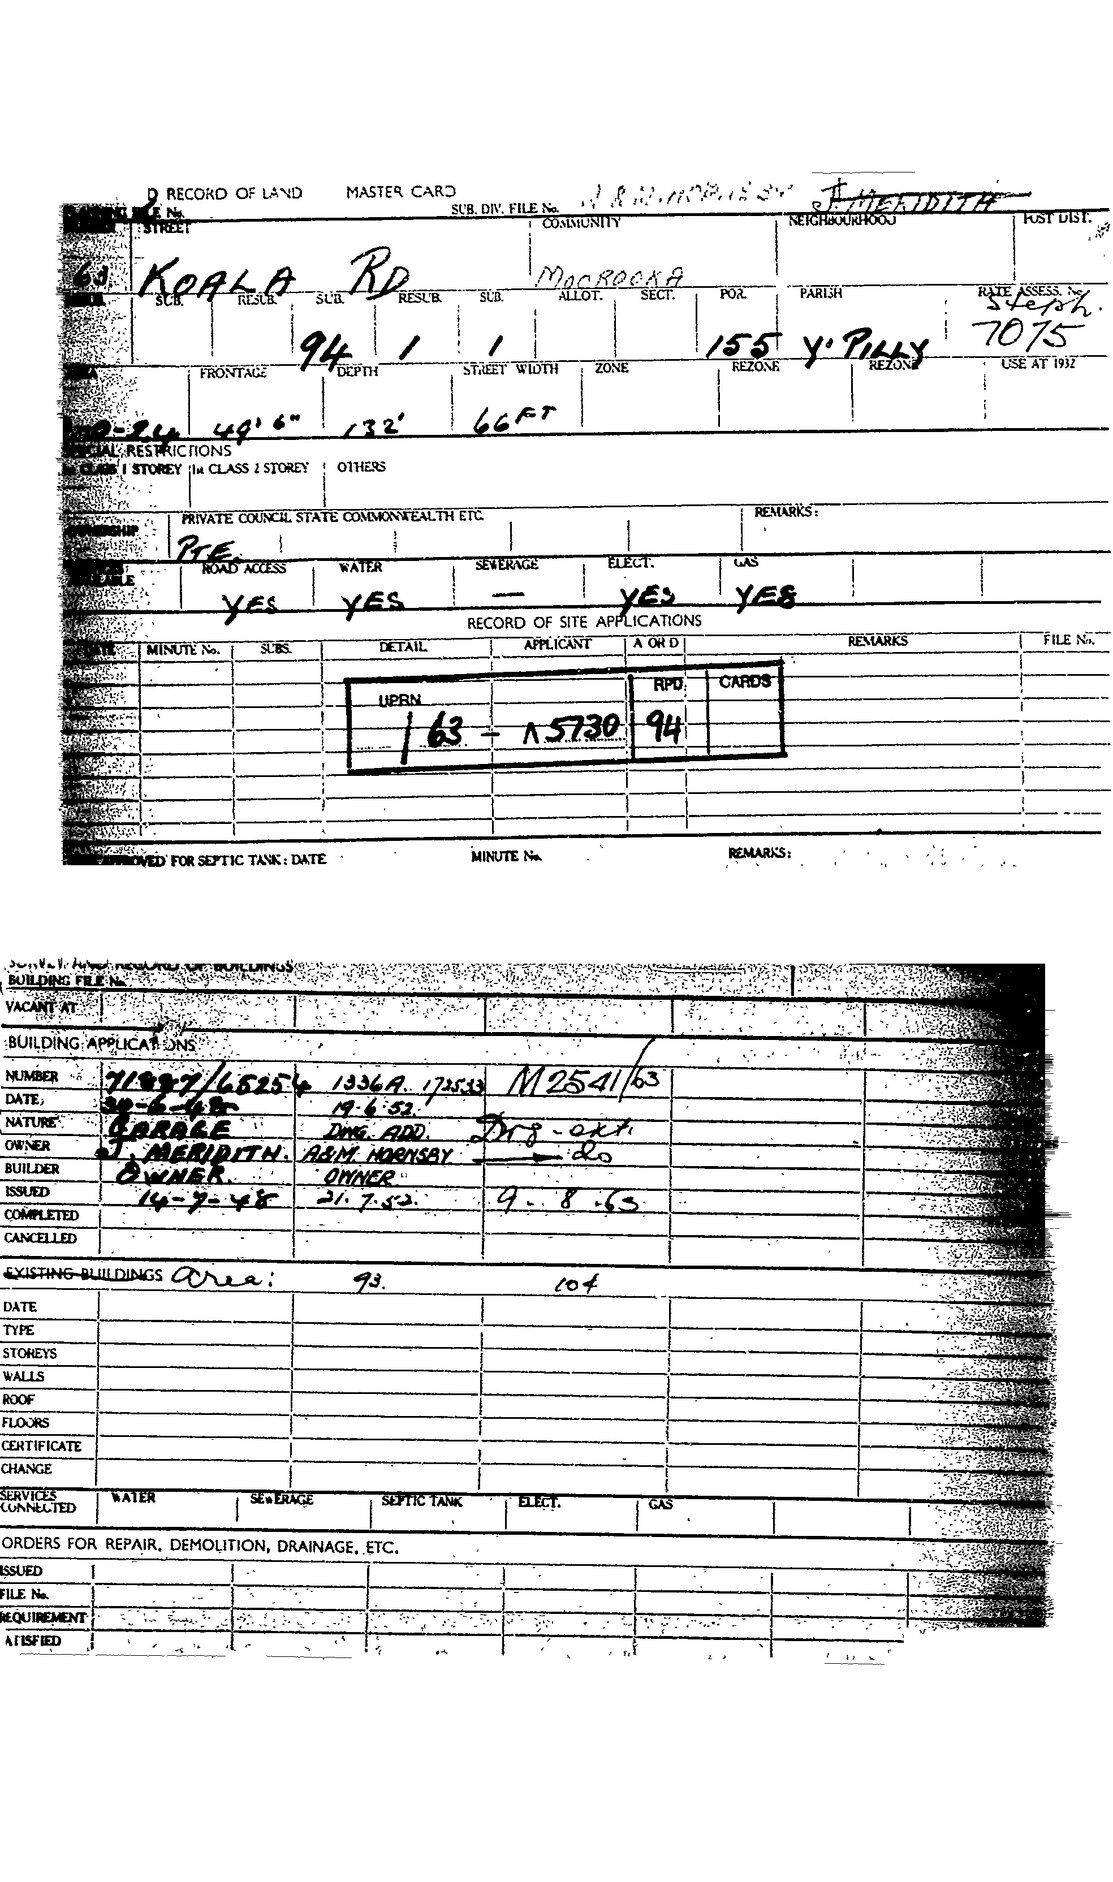 D RECORD OF LAND MASTER CARD
SUB. DIV. FILE No. J. MERIDITH
FILE No.
STREET COMMUNITY NEIGHBOURHOOD POST DIST.
63 KOALA RD MOOROOKA
SUB. RESUB. SUB. RESUB. SUB. ALLOT. SECT. POR. PARISH RATE ASSESS. No.
Steph.
94 1 1 155 Y. PILLY 7075
FRONTAGE DEPTH STREET WIDTH ZONE REZONE REZONE USE AT 1932
0-24 49' 6" 132' 66 FT
SPECIAL RESTRICTIONS
1st CLASS 1 STOREY 1st CLASS 2 STOREY OTHERS
OWNERSHIP PRIVATE COUNCIL STATE COMMONWEALTH ETC. REMARKS:
PTE.
ROAD ACCESS WATER SEWERAGE ELECT. GAS
YES YES — YES YES
RECORD OF SITE APPLICATIONS
DATE MINUTE No. SUBS. DETAIL APPLICANT A OR D REMARKS FILE No.
UPRN RPD CARDS
163 - 15730 94
APPROVED FOR SEPTIC TANK: DATE MINUTE No. REMARKS:
SURVEY AND RECORD OF BUILDINGS
BUILDING FILE No.
VACANT AT
BUILDING APPLICATIONS
NUMBER 71887/65254 1336A. 172533 M2541/63
DATE 30-6-48 19.6.52.
NATURE GARAGE DWG. ADD. Dwg-ext.
OWNER J. MERIDITH. A&M. HORNSBY do
BUILDER OWNER. OWNER
ISSUED 14-7-48 21.7.52. 9.8.63
COMPLETED
CANCELLED
EXISTING BUILDINGS Area: 93. 104
DATE
TYPE
STOREYS
WALLS
ROOF
FLOORS
CERTIFICATE
CHANGE
SERVICES CONNECTED WATER SEWERAGE SEPTIC TANK ELECT. GAS
ORDERS FOR REPAIR, DEMOLITION, DRAINAGE, ETC.
ISSUED
FILE No.
REQUIREMENT
ATISFIED